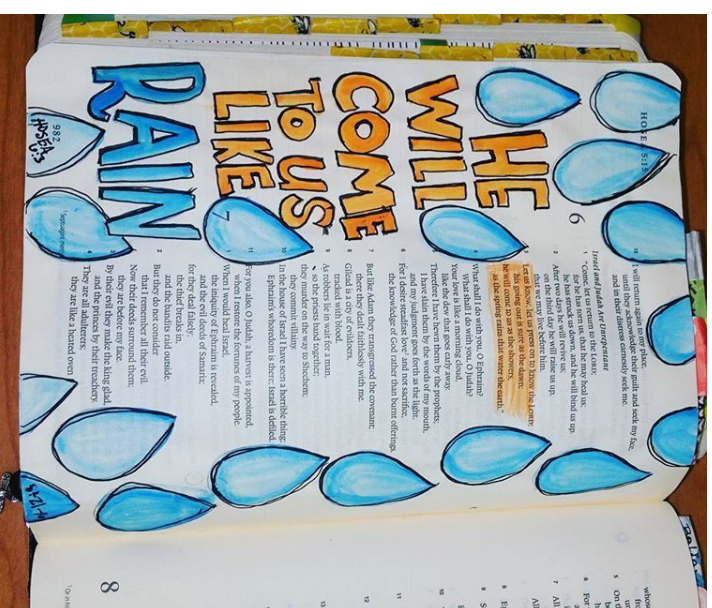 HOSEA 5:15
HE
WILL
COME
TO US
LIKE
RAIN
982
HOSEA
6:3
15 I will return again to my place,
until they acknowledge their guilt and seek my face,
and in their distress earnestly seek me.
6
Israel and Judah Are Unrepentant
1 "Come, let us return to the LORD;
for he has torn us, that he may heal us;
he has struck us down, and he will bind us up.
2 After two days he will revive us;
on the third day he will raise us up,
that we may live before him.
3 Let us know; let us press on to know the LORD;
his going out is sure as the dawn;
he will come to us as the showers,
as the spring rains that water the earth."
4 What shall I do with you, O Ephraim?
What shall I do with you, O Judah?
Your love is like a morning cloud,
like the dew that goes early away.
5 Therefore I have hewn them by the prophets;
I have slain them by the words of my mouth,
and my judgment goes forth as the light.
6 For I desire steadfast love and not sacrifice,
the knowledge of God rather than burnt offerings.
7 But like Adam they transgressed the covenant;
there they dealt faithlessly with me.
8 Gilead is a city of evildoers,
tracked with blood.
9 As robbers lie in wait for a man,
so the priests band together;
they murder on the way to Shechem;
they commit villainy.
10 In the house of Israel I have seen a horrible thing;
Ephraim's whoredom is there; Israel is defiled.
11 For you also, O Judah, a harvest is appointed,
when I restore the fortunes of my people.
7
1 When I would heal Israel,
the iniquity of Ephraim is revealed,
and the evil deeds of Samaria;
for they deal falsely;
the thief breaks in,
and the bandits raid outside.
2 But they do not consider
that I remember all their evil.
Now their deeds surround them;
they are before my face.
3 By their evil they make the king glad,
and the princes by their treachery.
4 They are all adulterers;
they are like a heated oven
1 Septuagint
8